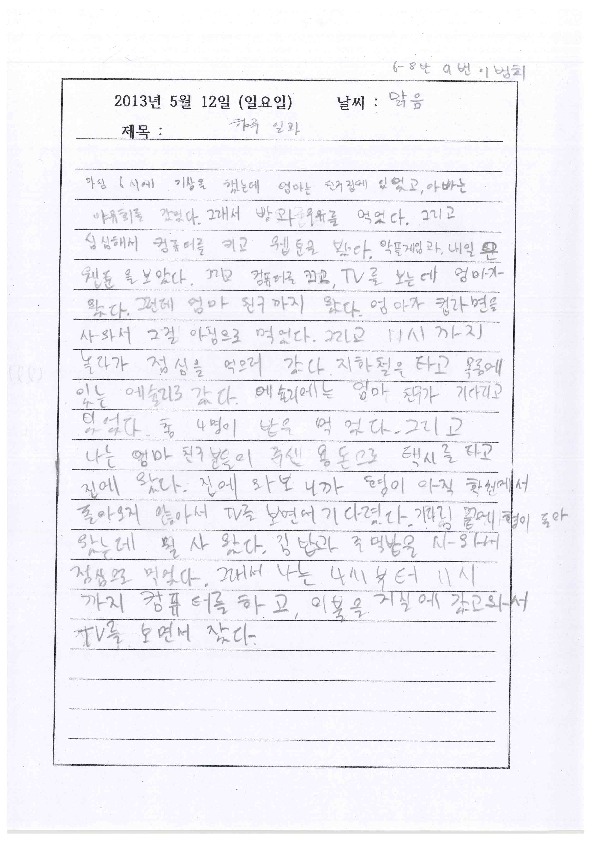 6-8반 9번 이범희
2013년 5월 12일 (일요일) 날씨 : 맑음
제목 : 하루 일과
아침 6시에 기상을 했는데 엄마는 친구집에 있었고, 아빠는
야유회를 갔었다. 그래서 밥과 우유를 먹었다. 그리고
심심해서 컴퓨터를 키고 웹툰을 봤다. 악플게임과, 내일은
웹툰을 보았다. 그리고 컴퓨터를 끄고, TV를 보는데 엄마가
왔다. 그런데 엄마 친구까지 왔다. 엄마가 컵라면을
사와서 그걸 아침으로 먹었다. 그리고 11시까지
놀다가 점심을 먹으러 갔다. 지하철은 타고 목동에
있는 에슐리로 갔다. 에슐리에는 엄마 친구가 기다리고
있었다. 총 4명이 밥을 먹었다. 그리고
나는 엄마 친구분들이 주신 용돈으로 택시를 타고
집에 왔다. 집에 와보니까 형이 아직 학원에서
돌아오지 않아서 TV를 보면서 기다렸다. 기다림 끝에 형이 돌아
왔는데 뭘 사왔다. 김밥과 주먹밥을 사와서
점심으로 먹었다. 그래서 나는 4시부터 11시
까지 컴퓨터를 하고, 이불을 거실에 갖고와서
TV를 보면서 잤다.